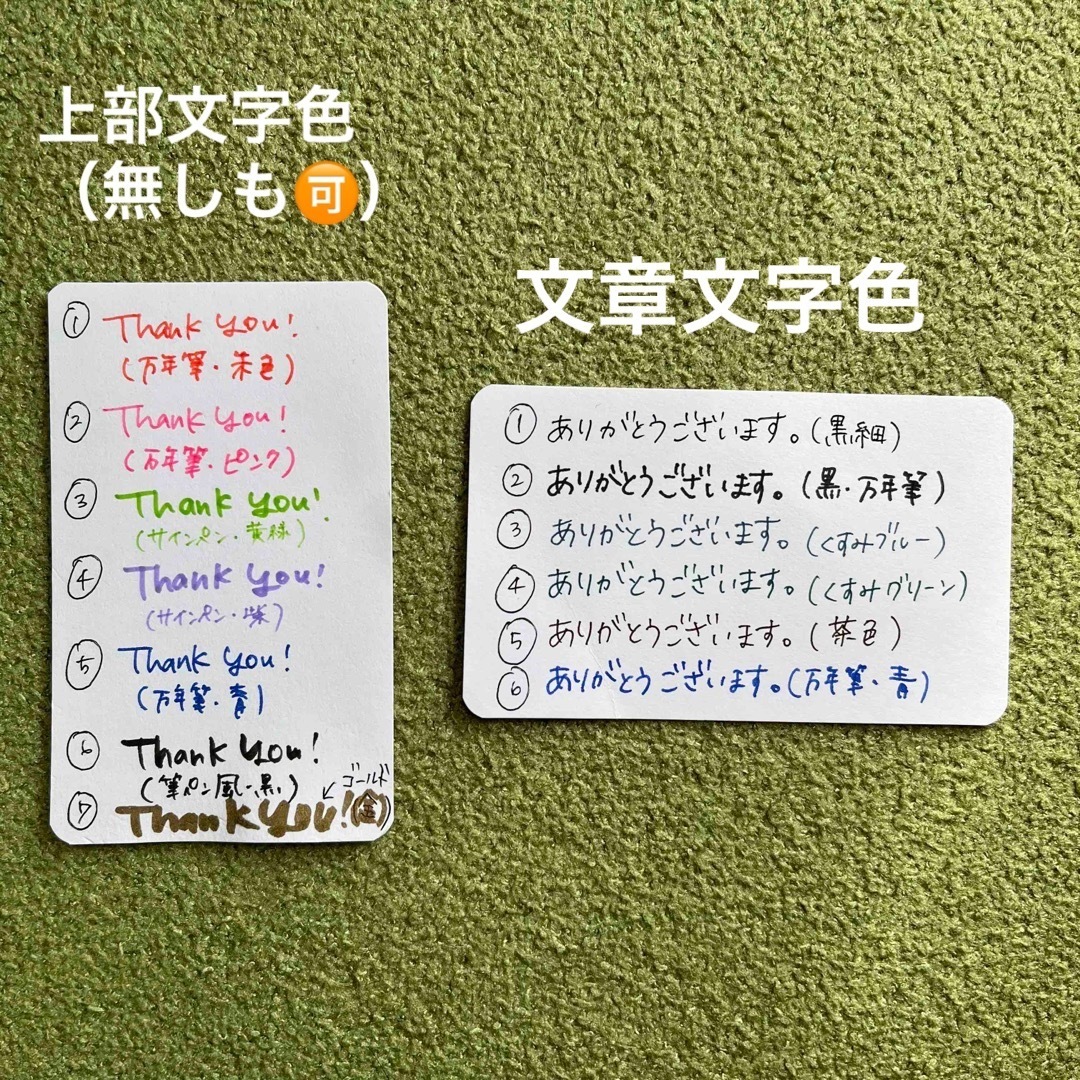 上部文字色
（無しも🉑）
① Thank you!
(万年筆・朱色)
② Thank you!
(万年筆・ピンク)
③ Thank you!
(サインペン・黄緑)
④ Thank you!
(サインペン・紫)
⑤ Thank you!
(万年筆・青)
⑥ Thank you!
(筆ペン風・黒)
↙ゴールド
⑦ Thank you!(金)
文章文字色
① ありがとうございます。(黒細)
② ありがとうございます。(黒・万年筆)
③ ありがとうございます。(くすみブルー)
④ ありがとうございます。(くすみグリーン)
⑤ ありがとうございます。(茶色)
⑥ ありがとうございます。(万年筆・青)